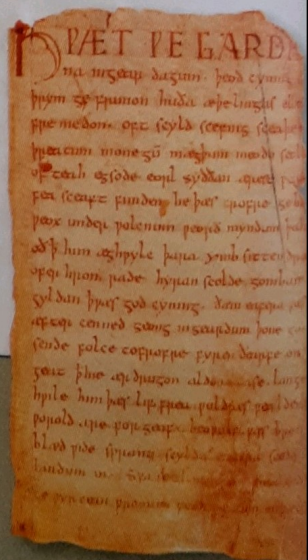 HǷÆT ǷE GARDE
na ingear dagum. þeod cynin
þrym ge frunon huða æþelingas
fremedon. oft scyld scefing sceaþe
þreatum monegū mægþum meodo se
ofteah egsode eorl syððan ærest
fea sceaft funden he þæs frofre ge
ƿeox under ƿolcnum ƿeorð myndum
oð þ him æghƿylc þara ymb sittend
ofer hron rade hyran scolde gomban
gyldan þ ƿæs god cyning. ðæm eafera
æfter cenned geong ingeardum þone
sende folce tofrofre fyren ðearfe
geat þ hie ær drugon aldor ase. lang
hƿile him þæs lif frea ƿuldres ƿealde
ƿorold are for geaf. beoƿulf ƿæs bre
blæd ƿide sprang scyldes eafera scede
landum in.